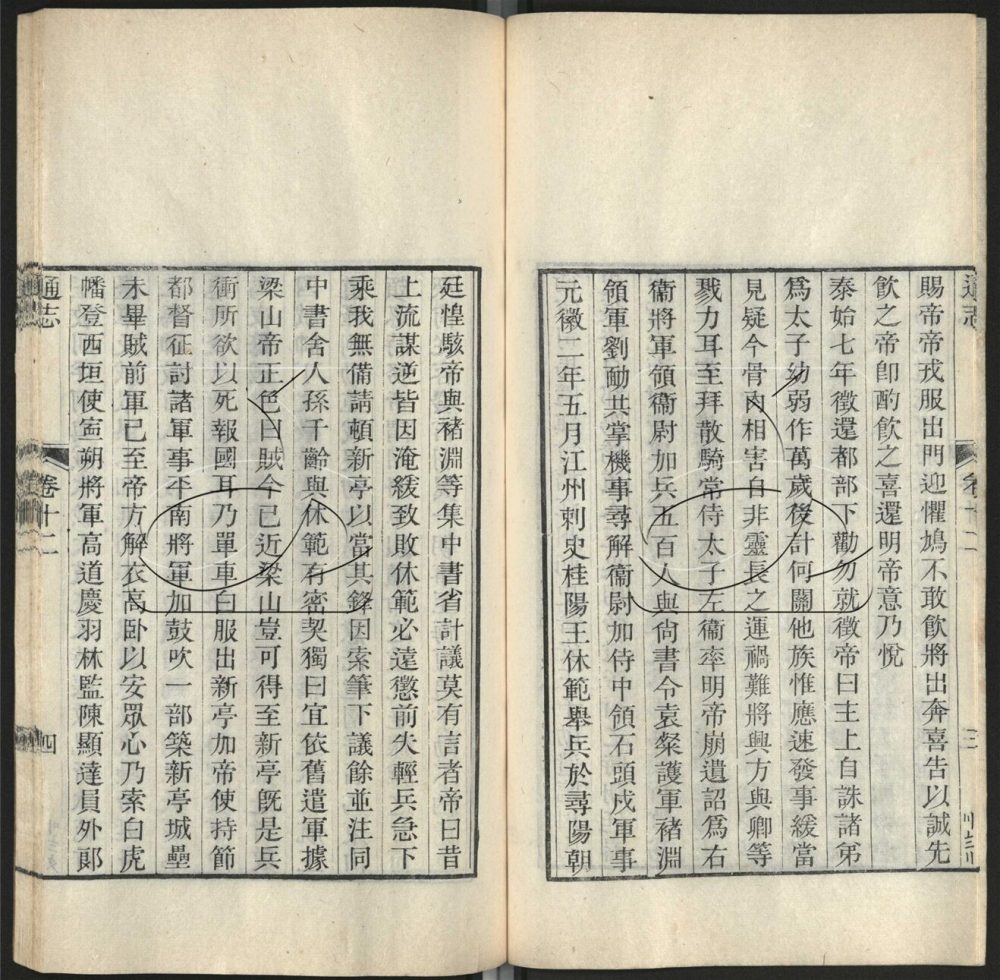 賜帝帝戎服出門迎懼鳩不敢飲將出奔喜告以誠先
飲之帝卽酌飲之喜還明帝意乃悅
泰始七年徵還都部下勸勿就徵帝曰主上自誅諸弟
爲太子幼弱作萬歲後計何關他族惟應速發事緩當
見疑今骨肉相害自非靈長之運禍難將興方與卿等
戮力耳至拜散騎常侍太子左衞率明帝崩遺詔爲右
衞將軍領衞尉加兵五百人與尙書令袁粲護軍褚淵
領軍劉勔共掌機事尋解衞尉加侍中領石頭戍軍事
元徽二年五月江州刺史桂陽王休範舉兵於尋陽朝
廷惶駭帝與褚淵等集中書省計議莫有言者帝曰昔
上流謀逆皆因淹緩致敗休範必遠懲前失輕兵急下
乘我無備請頓新亭以當其鋒因索筆下議餘並注同
中書舍人孫千齡與休範有密契獨曰宜依舊遣軍據
梁山帝正色曰賊今已近梁山豈可得至新亭旣是兵
衝所欲以死報國耳乃單車白服出新亭加帝使持節
都督征討諸軍事平南將軍加鼓吹一部築新亭城壘
未畢賊前軍已至帝方解衣高卧以安眾心乃索白虎
幡登西垣使寧朔將軍高道慶羽林監陳顯達員外郞
通志 卷十二 四